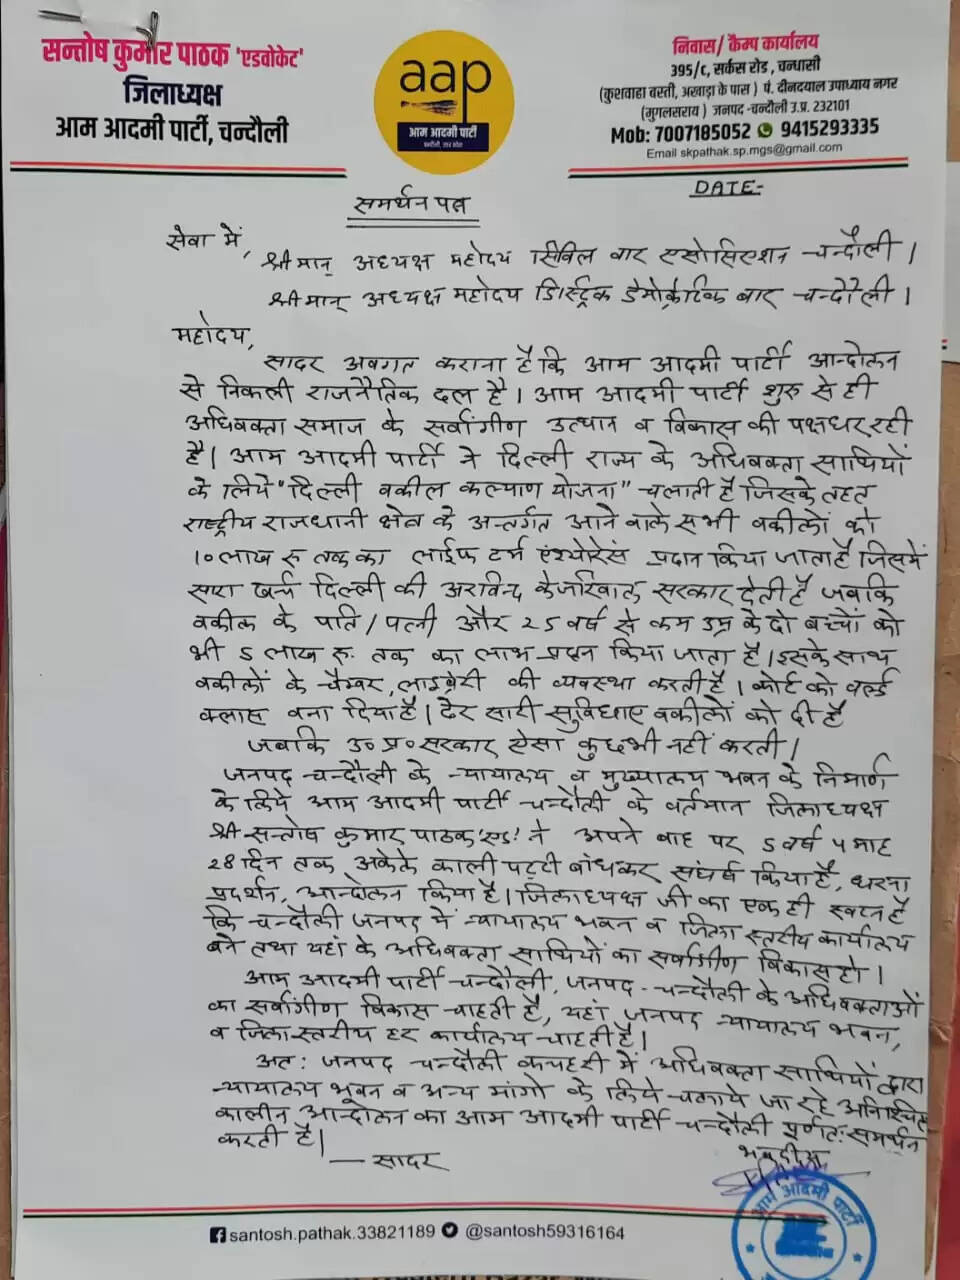 सन्तोष कुमार पाठक 'एडवोकेट'
जिलाध्यक्ष
आम आदमी पार्टी, चन्दौली
aap
आम आदमी पार्टी
चन्दौली, उत्तर प्रदेश
निवास/ कैम्प कार्यालय
395/c, सर्कस रोड, चन्धासी
(कुशवाहा बस्ती, अखाड़ा के पास) पं. दीनदयाल उपाध्याय नगर
(मुगलसराय) जनपद-चन्दौली उ.प्र. 232101
Mob: 7007185052 9415293335
Email skpathak.sp.mgs@gmail.com
DATE-
समर्थन पत्र
सेवा में,
श्रीमान् अध्यक्ष महोदय सिविल बार एसोसिएशन चन्दौली।
श्रीमान् अध्यक्ष महोदय डिस्ट्रिक डेमोक्रेटिक बार चन्दौली।
महोदय,
सादर अवगत कराना है कि आम आदमी पार्टी आन्दोलन
से निकली राजनैतिक दल है। आम आदमी पार्टी शुरु से ही
अधिवक्ता समाज के सर्वांगीण उत्थान व विकास की पक्षधर रही
है। आम आदमी पार्टी ने दिल्ली राज्य के अधिवक्ता साथियों
के लिये "दिल्ली वकील कल्याण योजना" चलाती है जिसके तहत
राष्ट्रीय राजधानी क्षेत्र के अन्तर्गत आने वाले सभी वकीलों को
10 लाख रु तक का लाईफ टर्म इंश्योरेंस प्रदान किया जाता है जिसमें
सारा खर्च दिल्ली की अरविन्द केजरिवाल सरकार देती है जबकि
वकील के पति/पत्नी और 25 वर्ष से कम उम्र के दो बच्चों को
भी 5 लाख रु. तक का लाभ प्रदान किया जाता है। इसके साथ
वकीलों के चैम्बर, लाइब्रेरी की व्यवस्था करती है। कोर्ट को वर्ल्ड
क्लास बना दिया है। ढेर सारी सुविधाए वकीलों को दी है
जबकि उ०प्र० सरकार ऐसा कुछ भी नहीं करती।
जनपद चन्दौली के न्यायालय व मुख्यालय भवन के निर्माण
के लिये आम आदमी पार्टी चन्दौली के वर्तमान जिलाध्यक्ष
श्री सन्तोष कुमार पाठक 'एड' ने अपने बाह पर 5 वर्ष 4 माह
28 दिन तक अकेले काली पट्टी बांधकर संघर्ष किया है, धरना
प्रदर्शन, आन्दोलन किया है। जिलाध्यक्ष जी का एक ही स्वप्न है
कि चन्दौली जनपद में न्यायालय भवन व जिला स्तरीय कार्यालय
बने तथा यहां के अधिवक्ता साथियों का सर्वांगीण विकास हो।
आम आदमी पार्टी चन्दौली, जनपद-चन्दौली के अधिवक्ताओं
का सर्वांगीण विकास चाहती है, यहां जनपद न्यायालय भवन,
व जिलास्तरीय हर कार्यालय चाहती है।
अतः जनपद चन्दौली कचहरी में अधिवक्ता साथियों द्वारा
न्यायालय भवन व अन्य मांगो के लिये चलाये जा रहे अनिश्चित-
कालीन आन्दोलन का आम आदमी पार्टी चन्दौली पूर्णतः समर्थन
करती है।
—सादर
भवदीय
आम आदमी पार्टी
santosh.pathak.33821189 @santosh59316164